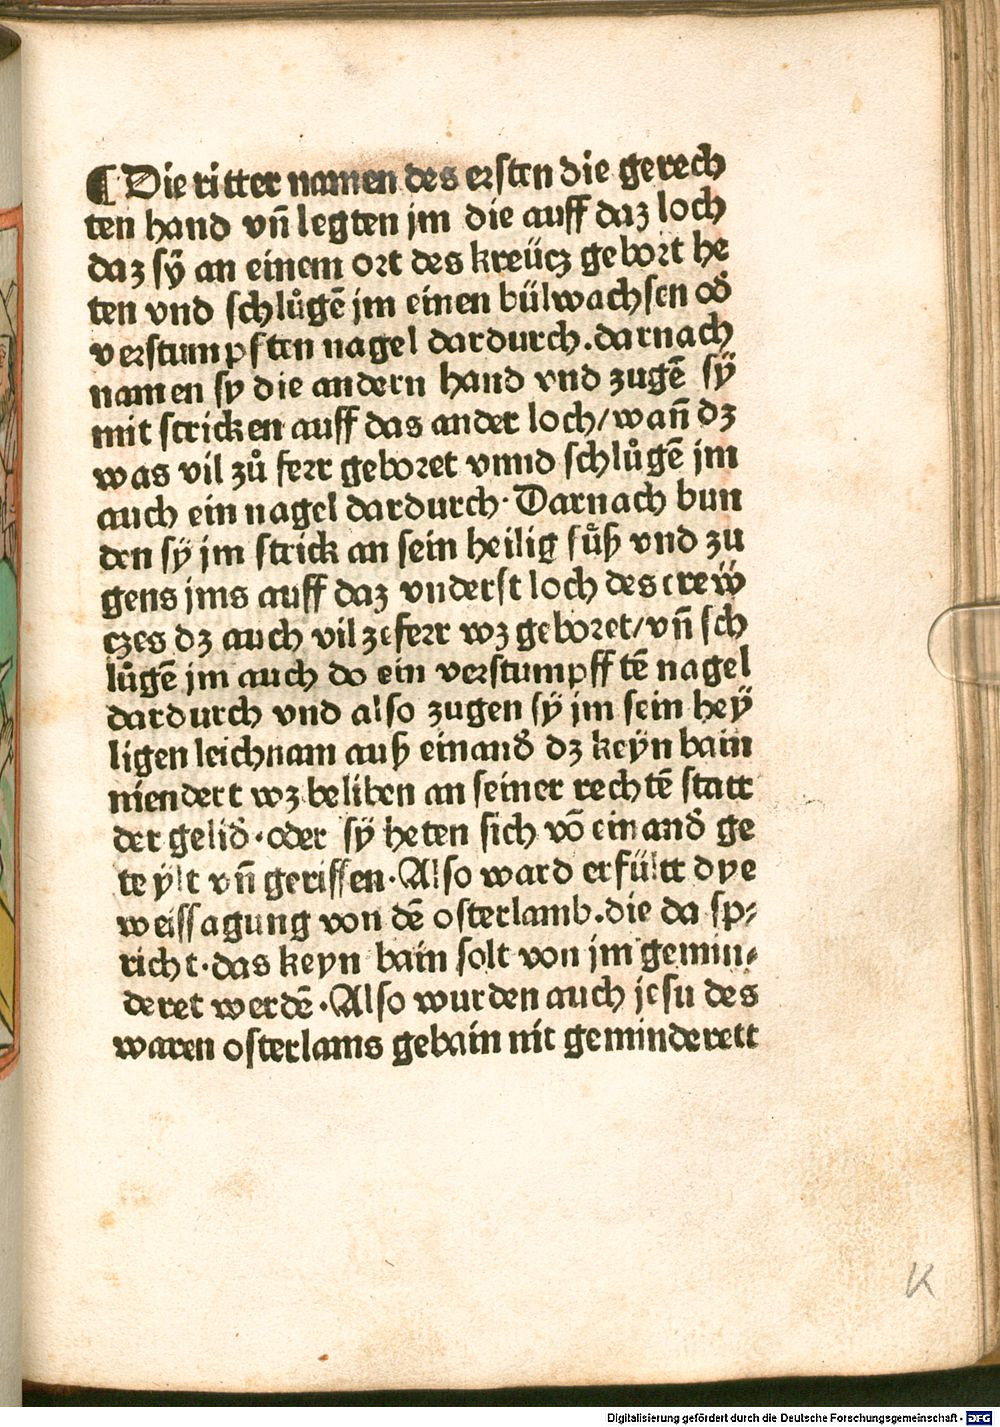 ¶ Die ritter namen des ersten die gerech
ten hand vn̄ legten jm die auff daz loch
daz sÿ an einem ort des kreücz gebort he
ten vnd schlůgē jm einen bülwachsen od̓
verstumpften nagel dardurch. darnach
namen sy die andern hand vnd zugē sÿ
mit stricken auff das ander loch/wan̄ dz
was vil zů ferr geboret vnnd schlůgē jm
auch ein nagel dardurch· Darnach bun
den sÿ jm strick an sein heilig fůß vnd zu
gens jms auff daz vnderst loch des creẅ
czes dz auch vil ze ferr wz geboret/vn̄ sch
lůgē jm auch do ein verstumpfftē nagel
dardurch vnd also zugen sÿ jm sein heÿ
ligen leichnam auß einand̓ dz keyn bain
niendert wz beliben an seiner rechtē statt
der gelid̓·oder sÿ heten sich vō einand̓ ge
teÿlt vn̄ gerissen·Also ward erfültt dye
weissagung von dē osterlamb.die da sp⸗
richt·das keyn bain solt von jm gemin⸗
deret werdē·Also wurden auch jesu des
waren osterlams gebain nit geminderett
K
Digitalisierung gefördert durch die Deutsche Forschungsgemeinschaft - DFG